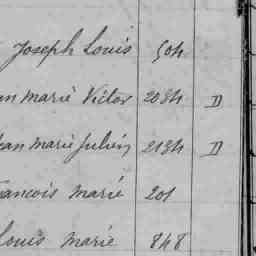 Joseph Louis 504
an marie Victor 2034 D
ean marie Julien 2134 D
rancois marie 201
Louis marie 848